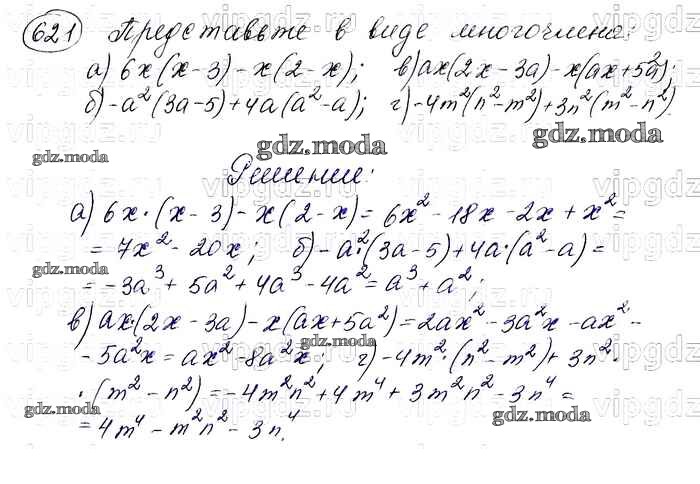 621 Представьте в виде многочлена:
а) 6x(x-3)-x(2-x); в) ax(2x-3a)-x(ax+5a²);
б) -a²(3a-5)+4a(a²-a); г) -4m²(n²-m²)+3n²(m²-n²).
gdz.moda
gdz.moda
gdz.moda
Решение:
а) 6x·(x-3)-x(2-x)=6x²-18x-2x+x²=
=7x²-20x; б) -a²·(3a-5)+4a·(a²-a)=
gdz.moda
=-3a³+5a²+4a³-4a²=a³+a²;
в) ax·(2x-3a)-x(ax+5a²)=2ax²-3a²x-ax²-
gdz.moda
-5a²x=ax²-8a²x; г) -4m²·(n²-m²)+3n²·
·(m²-n²)=-4m²n²+4m⁴+3m²n²-3n⁴=
gdz.moda
gdz.moda
gdz.moda
=4m⁴-m²n²-3n⁴.
vipgdz.ru